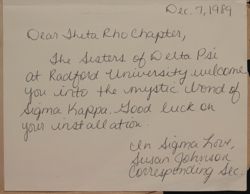 Dec. 7, 1989
Dear Theta Rho Chapter,
The Sisters of Delta Psi
at Radford University welcome
you into the mystic bond of
Sigma Kappa. Good luck on
your installation.
In Sigma Love,
Susan Johnson
Corresponding Sec.